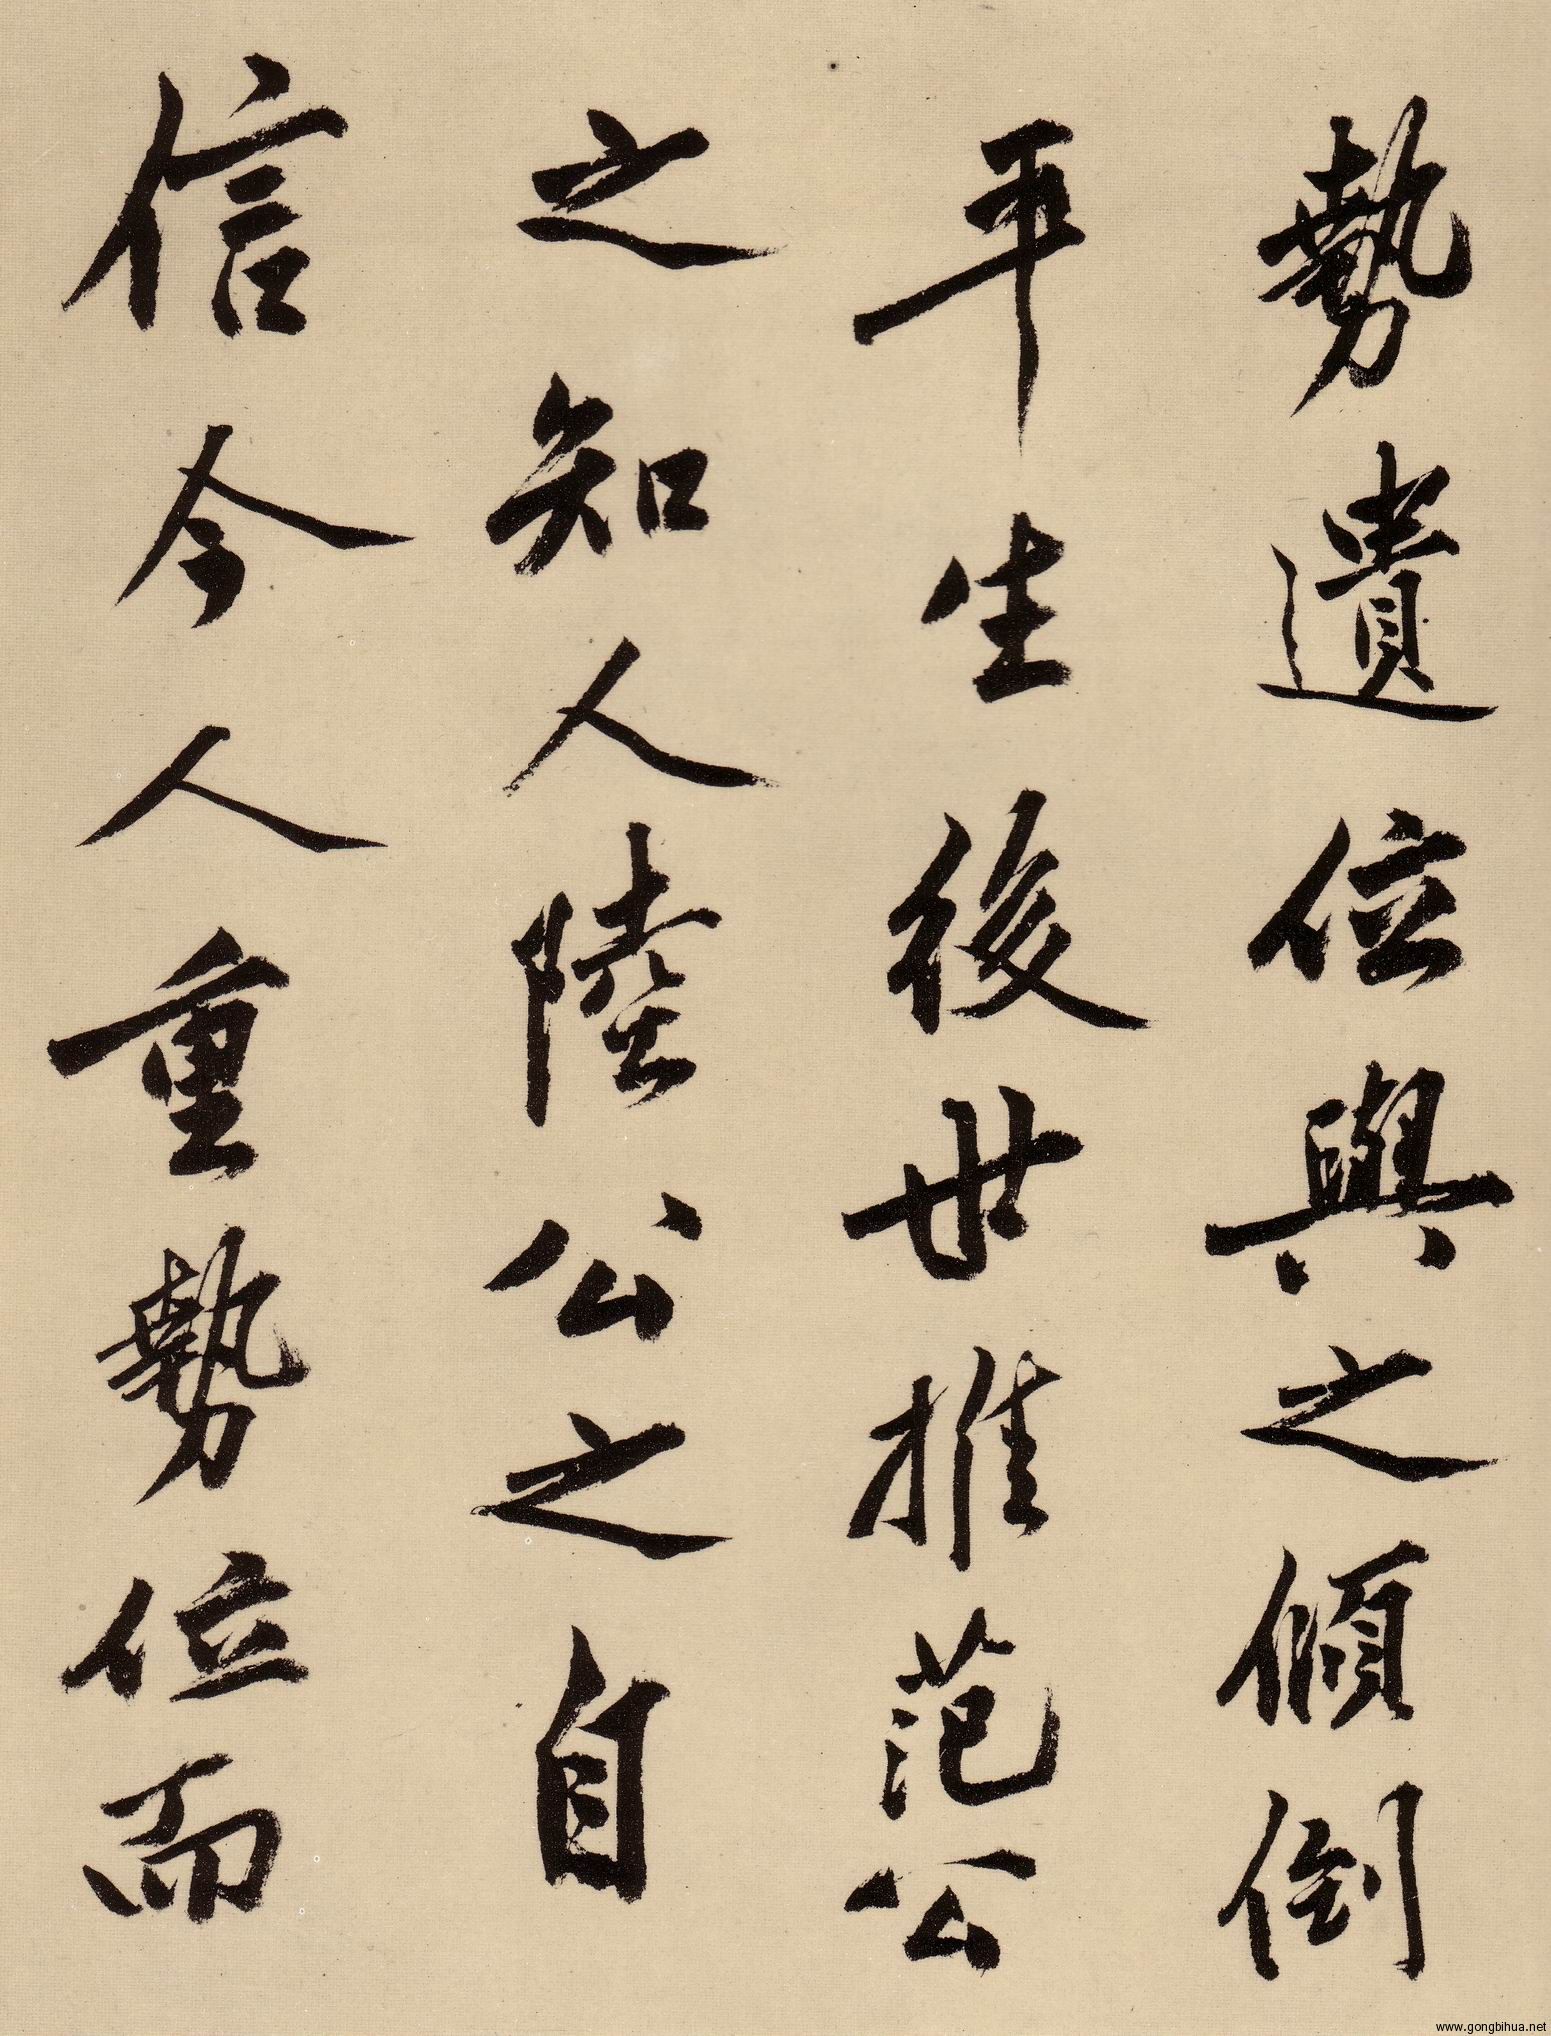 勢遺位與之傾倒
平生後世推范公
之知人陸公之自
信今人重勢位而
www.gongbihua.net